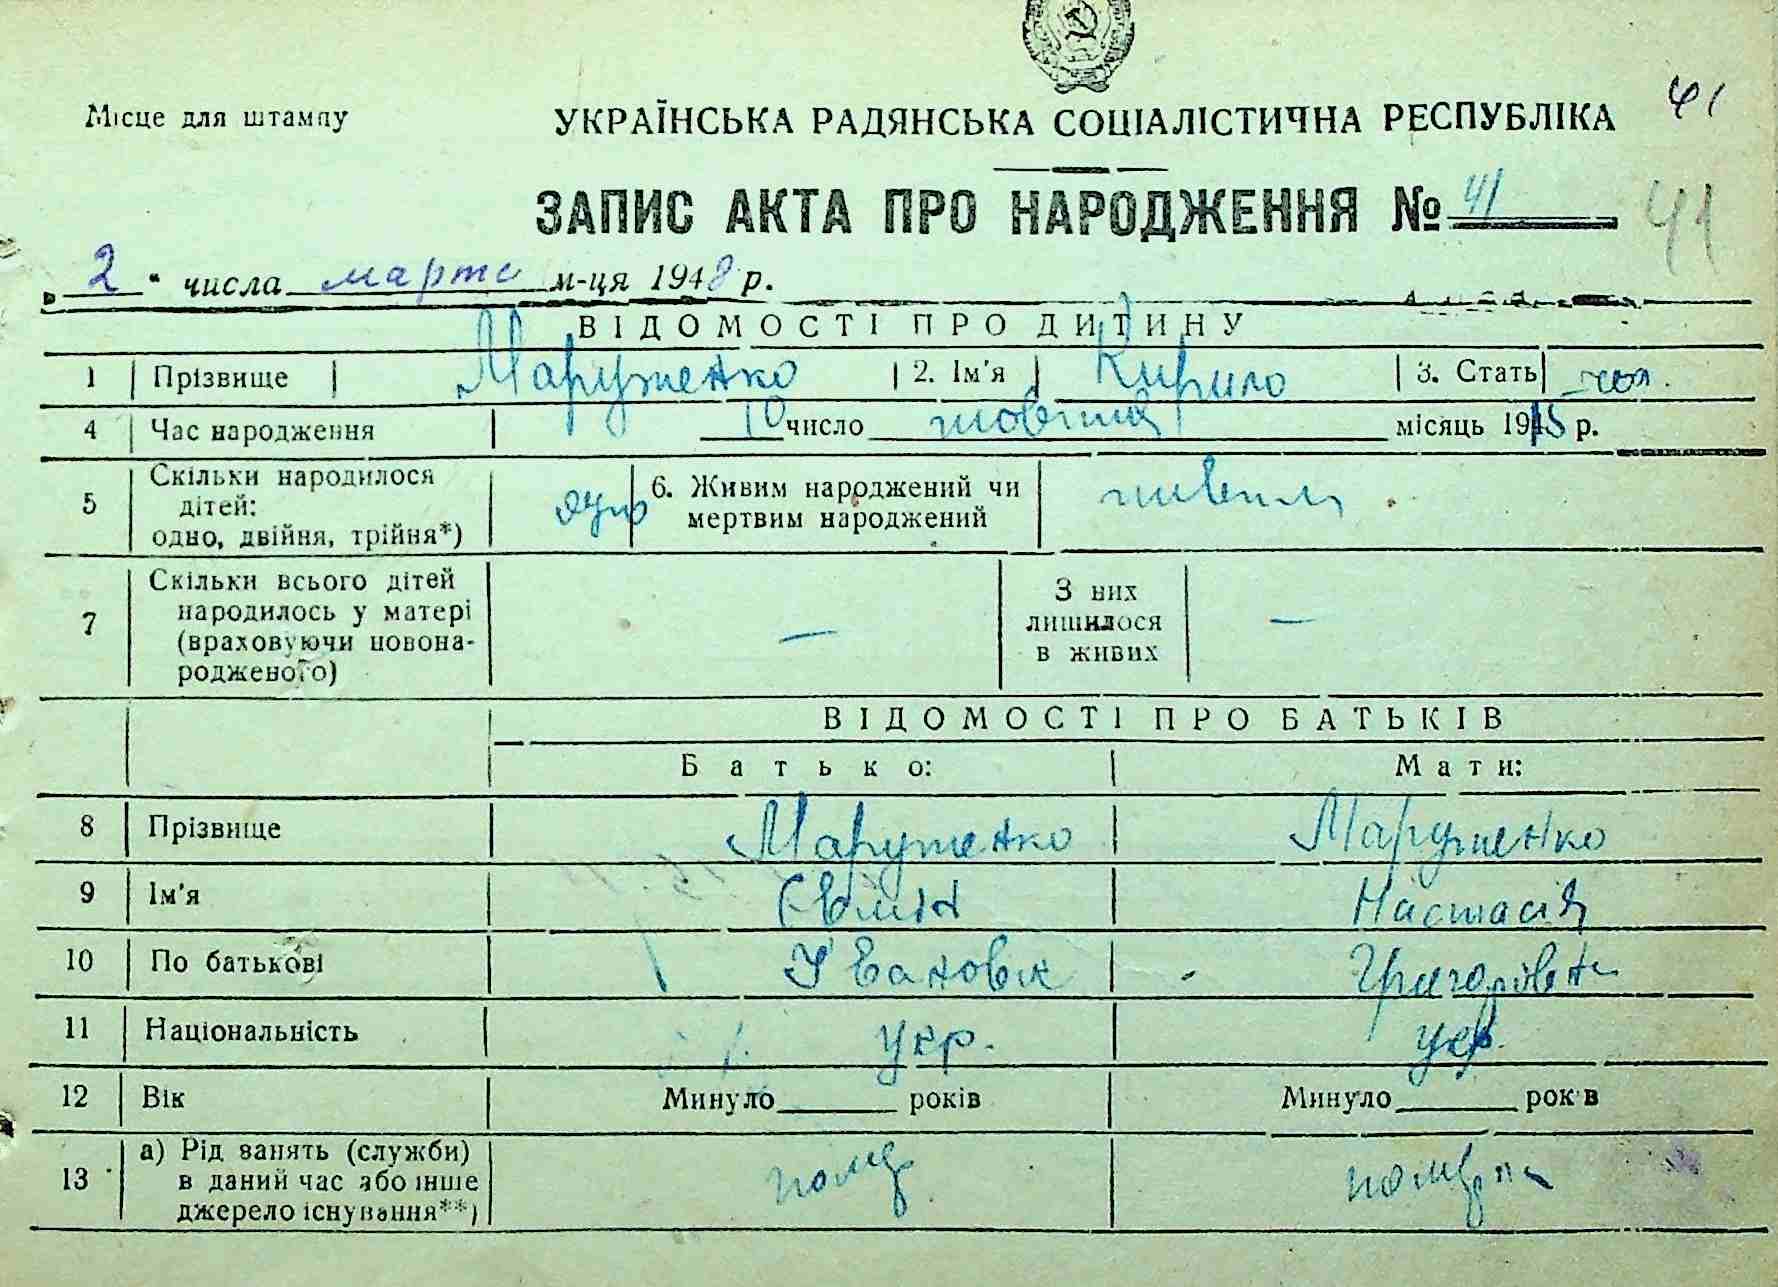 41
Місце для штампу
УКРАЇНСЬКА РАДЯНСЬКА СОЦІАЛІСТИЧНА РЕСПУБЛІКА
ЗАПИС АКТА ПРО НАРОДЖЕННЯ № 41
41
„ 2 " числа марта м-ця 1948 р.
ВІДОМОСТІ ПРО ДИТИНУ
1 Прізвище Марущенко 2. Ім'я Кирило 3. Стать чол.
4 Час народження 10 число жовтня місяць 19 р.
5 Скільки народилося дітей: одно, двійня, трійня*) 6. Живим народжений чи мертвим народжений живим
7 Скільки всього дітей народилось у матері (враховуючи новонародженого) — З них лишилося в живих —
ВІДОМОСТІ ПРО БАТЬКІВ
Батько: Мати:
8 Прізвище Марущенко Марущенко
9 Ім'я Настасія
10 По батькові Григорівна
11 Національність укр. укр.
12 Вік Минуло років Минуло рок в
13 а) Рід занять (служби) в даний час або інше джерело існування**)